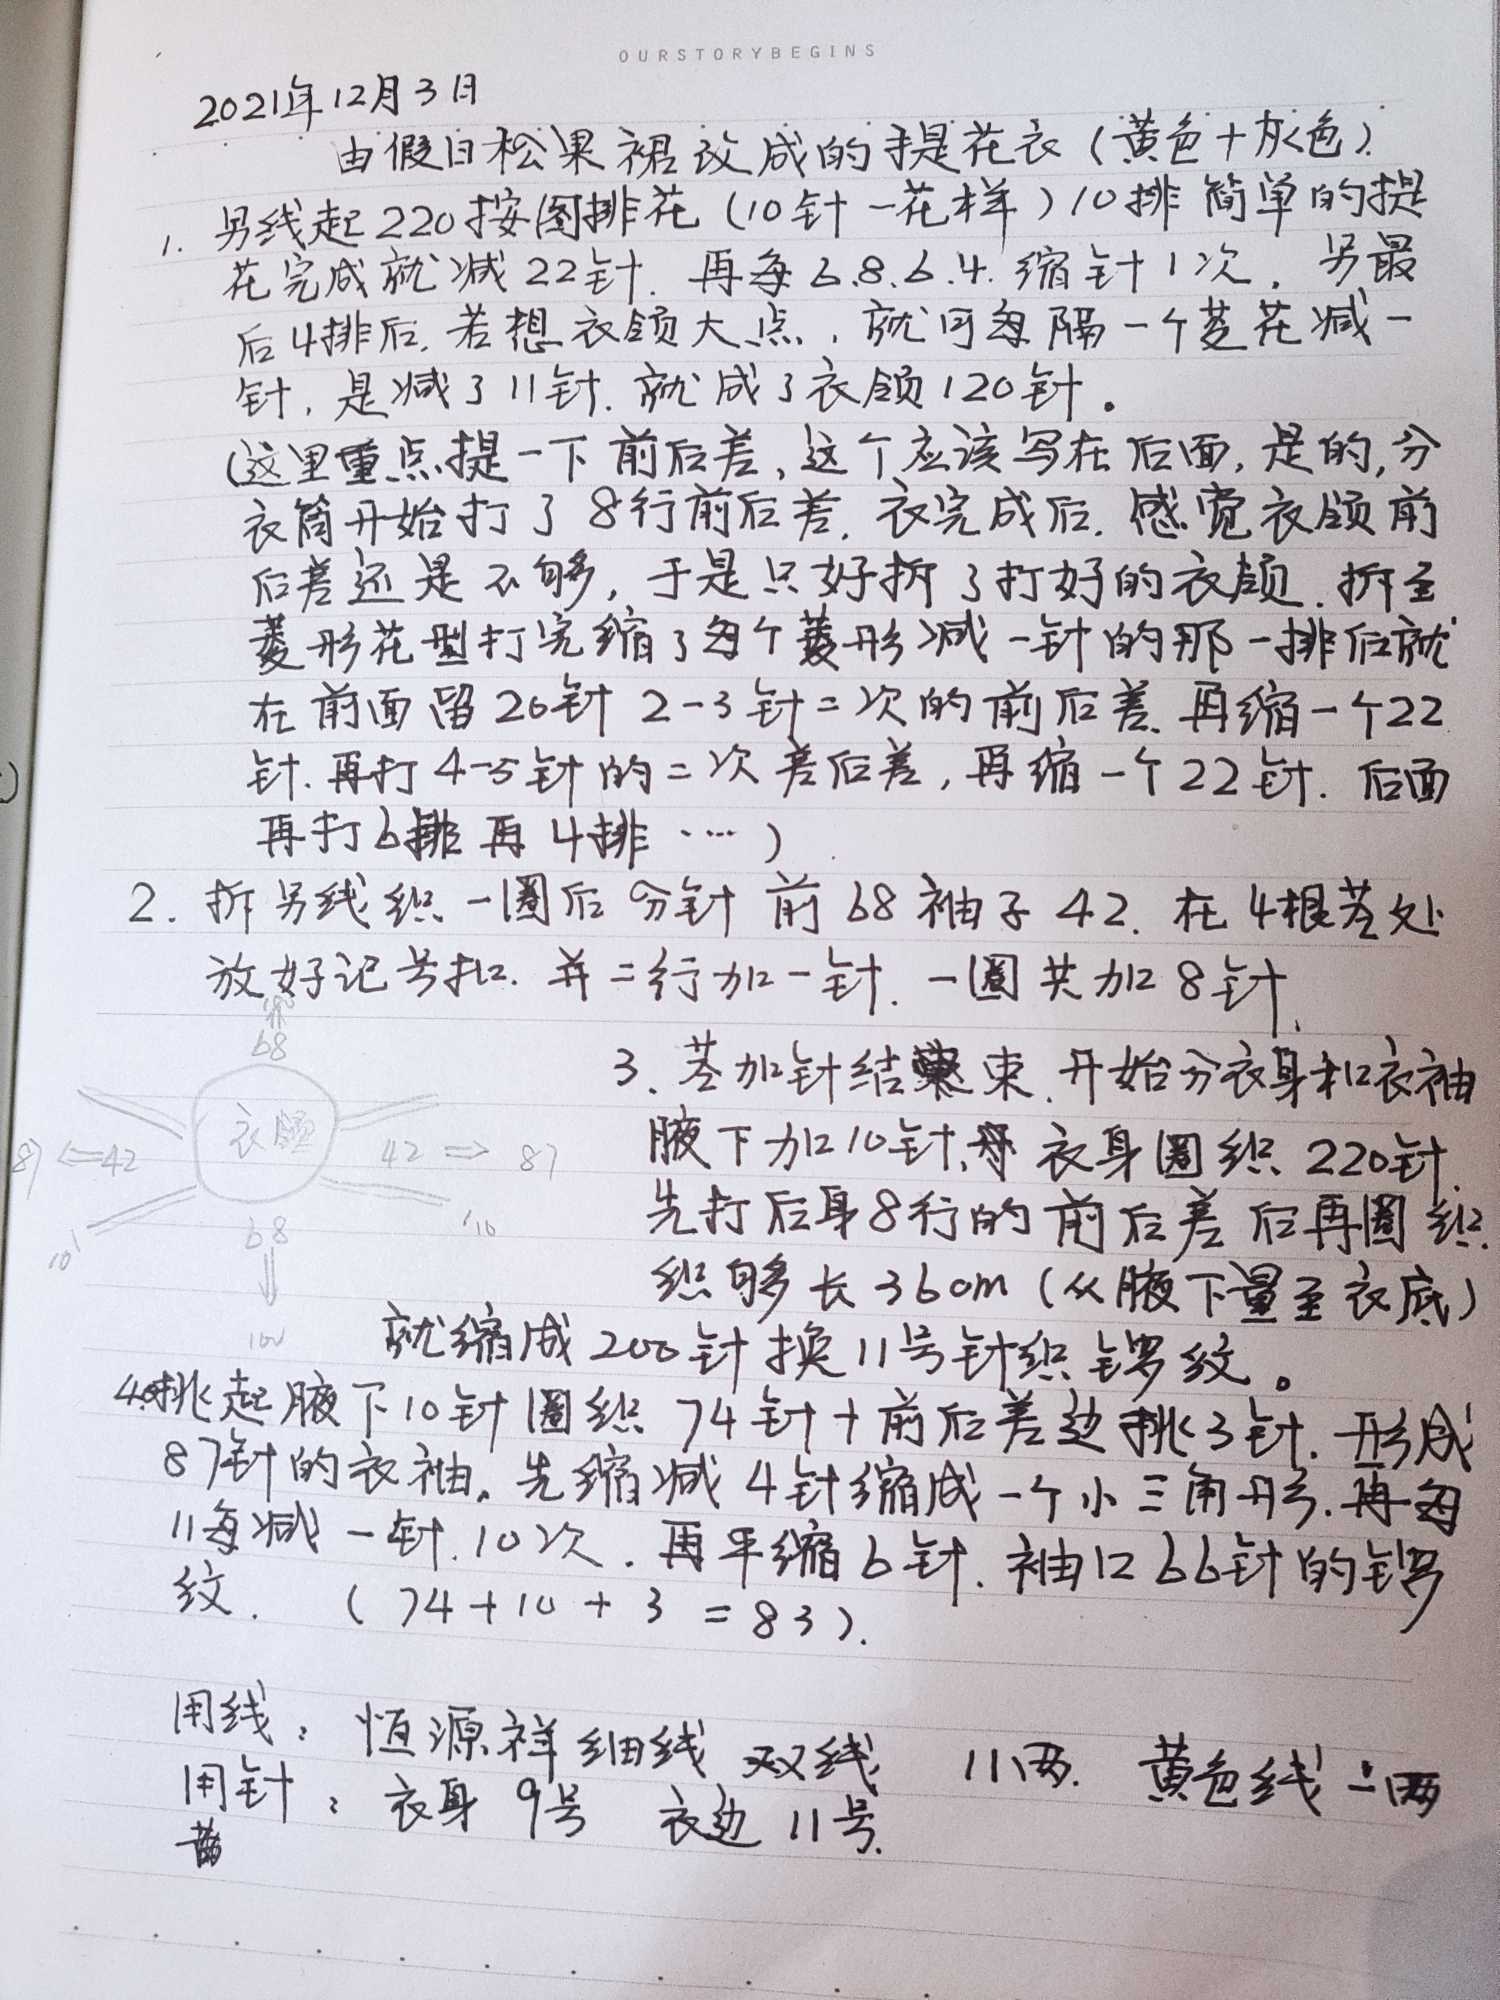 OURSTORYBEGINS
2021年12月3日
由假日松果裙改成的提花衣(黄色+灰色)
1. 另线起220按图排花(10针一花样)10排简单的提
花完成就减22针.再每6.8.6.4.缩针1次.另最
后4排后.若想衣领大点,就可每隔一个菱花减一
针,是减了11针.就成了衣领120针。
(这里重点提一下前后差,这个应该写在后面,是的,分
衣筒开始打了8行前后差.衣完成后.感觉衣领前
后差还是不够,于是只好拆了打好的衣领.拆至
菱形花型打完缩了每个菱形减一针的那一排后就
在前面留20针2-3针二次的前后差.再缩一个22
针.再打4-5针的二次差后差,再缩一个22针.后面
再打6排再4排……)
2. 拆另线织一圈后分针前68袖子42.在4根茎处
放好记号扣.并二行加一针.一圈共加8针.
68
3、茎加针结束.开始分衣身和衣袖
衣领
腋下加10针,衣身圈织220针.
87 ⇐42 42 ⇒ 87
先打后身8行的前后差后再圈织.
10 68 10
织够长36cm(从腋下量至衣底)
就缩成200针换11号针织锣纹。
4.挑起腋下10针圈织74针+前后差边挑3针.形成
87针的衣袖.先缩减4针缩成一个小三角形.再每
11每减一针.10次.再平缩6针.袖口66针的锣
纹. (74+10+3=83).
用线:恒源祥细线 双线 11两. 黄色线二两
用针:衣身9号 衣边11号.